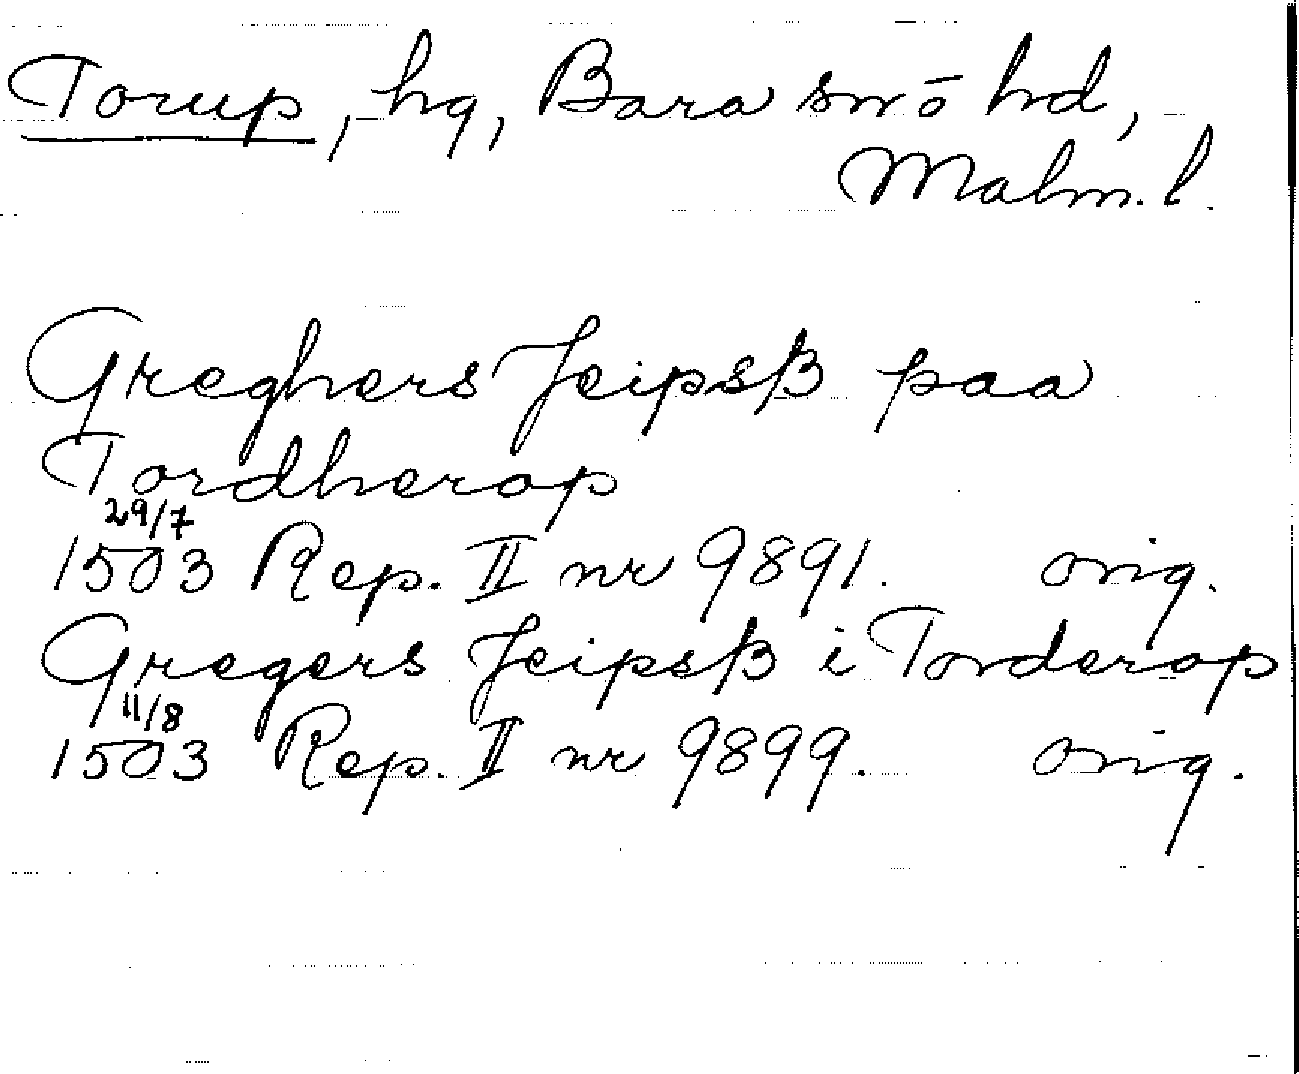 Torup, hg, Bara snō hd,
Malm. l.
Greghers Jeipsß paa
Tordherop
29/7
1503 Rep. II nr 9891. orig.
Gregers Jeipsß i Torderop
11/8
1503 Rep. II nr 9899. orig.